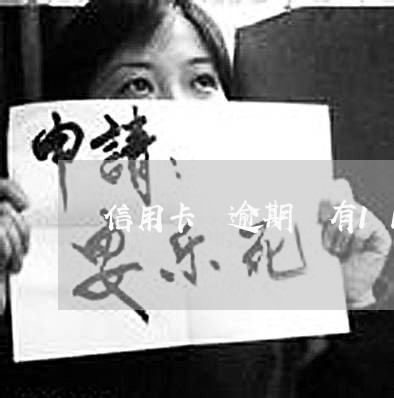 申請:
安乐死
信用卡 逾期 有1